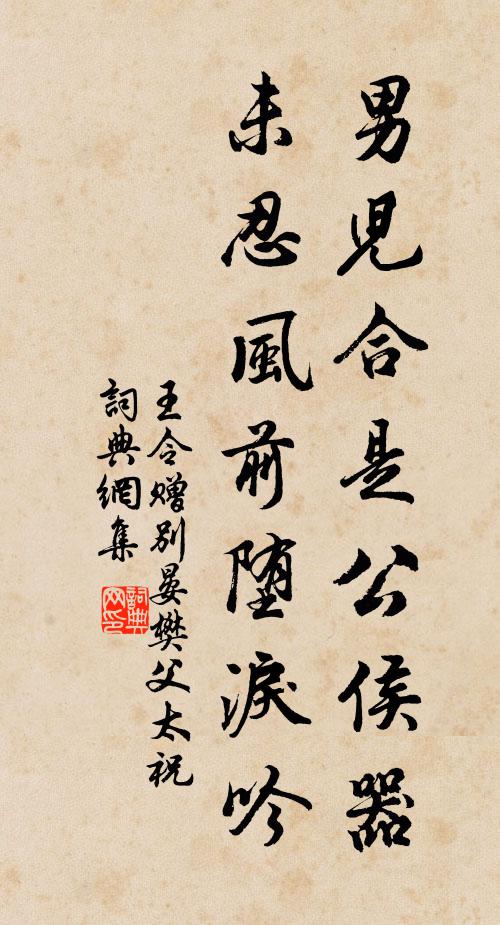 男兒合是公侯器
未忍風前墮淚吟
王令贈別晏樊父太祝
詞典網集
詞典网印